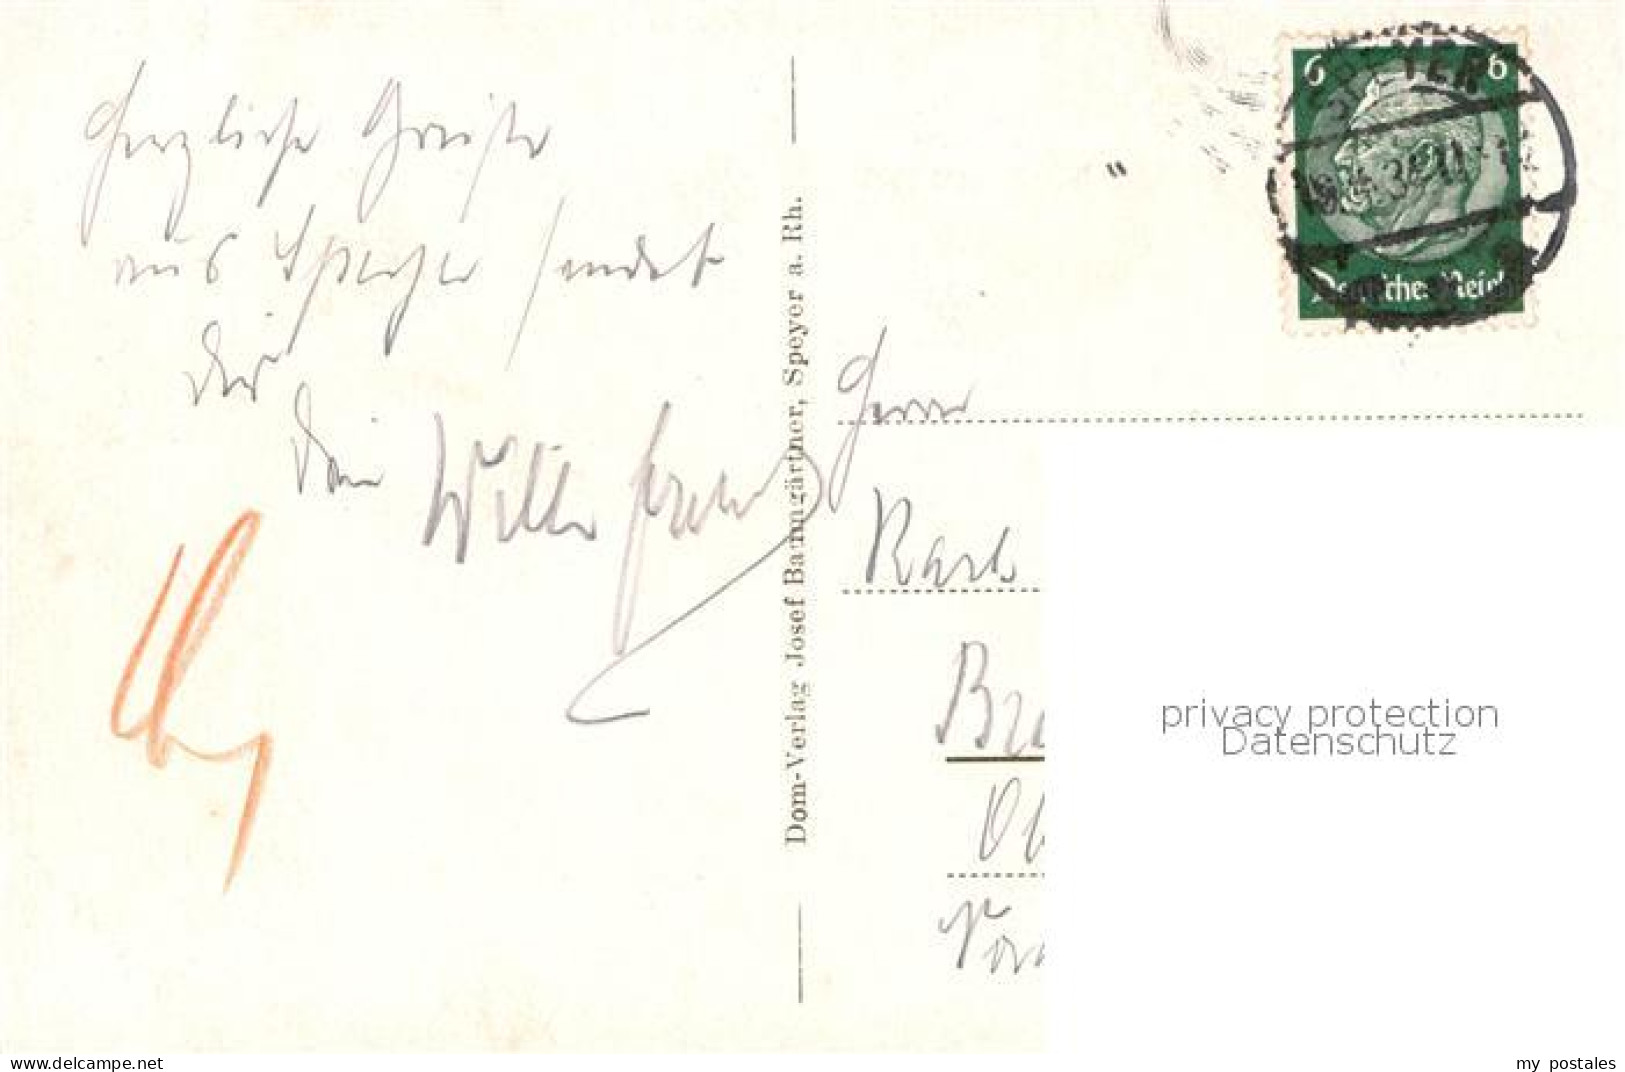 Herzliche Grüße
aus Speyer sendet
Dir
Dein Willi
Dom-Verlag Josef Baumgärtner, Speyer a. Rh.
6 6
Deutsches Reich
SPEYER
Herrn
Karl
privacy protection
Datenschutz
www.delcampe.net
my_postales